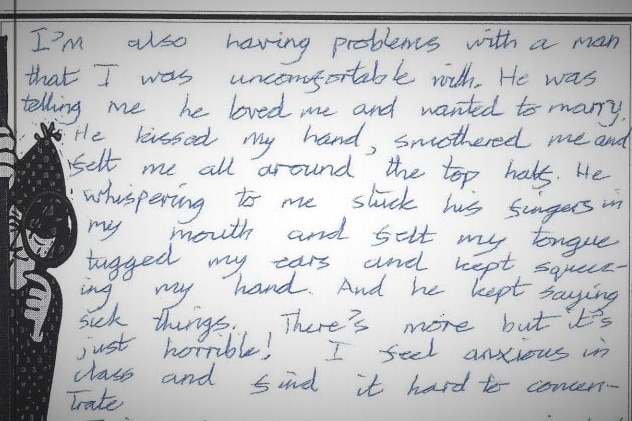 I'm also having problems with a man
that I was uncomfortable with. He was
telling me he loved me and wanted to marry.
He kissed my hand, smothered me and
felt me all around the top half. He
whispering to me stuck his fingers in
my mouth and felt my tongue
tugged my ears and kept squeez-
ing my hand. And he kept saying
sick things. There's more but it's
just horrible! I feel anxious in
class and find it hard to concen-
trate